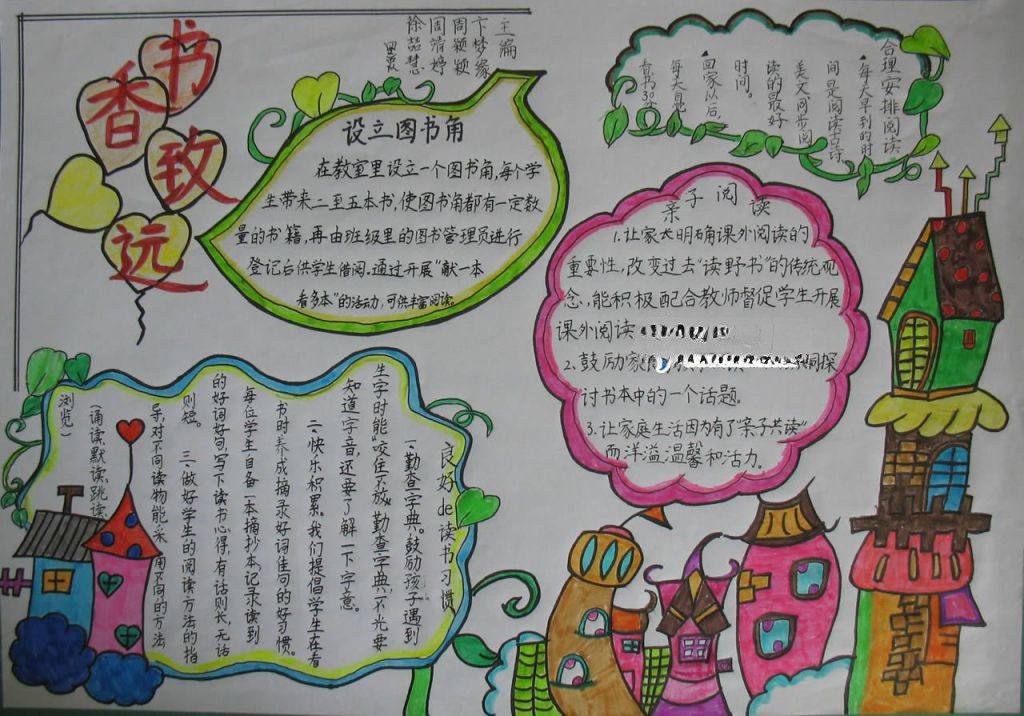 书香致远
主编
卞梦缘
周颖颖
周清婷
徐喆慧
设立图书角
在教室里设立一个图书角,每个学
生带来二至五本书,使图书角都有一定数
量的书籍,再由班级里的图书管理员进行
登记后供学生借阅。通过开展“献一本
看多本”的活动,可供丰富阅读。
合理安排阅读
▲每天早到的时
间是阅读古诗
美文阅书阅
读的最好
时间。
▲回家以后,
每天自觉
看书30分
亲子阅读
1.让家长明确课外阅读的
重要性,改变过去“读野书”的传统观
念,能积极配合教师督促学生开展
课外阅读
2.鼓励家
同探
讨书本中的一个话题。
3.让家庭生活因为有了“亲子共读”
而洋溢温馨和活力。
良好de读书习惯
一、勤查字典。鼓励孩子遇到
生字时能“咬住不放”勤查字典,不光要
知道字音,还要了解一下字意。
二、快乐积累。我们提倡学生在看
书时养成摘录好词佳句的好习惯。
每位学生自备一本摘抄本,记录读到
的好词好句,写下读书心得,有话则长,无话
则短。
三、做好学生的阅读方法的指
导,对不同读物能采用不同的方法
(诵读、默读、跳读
浏览)